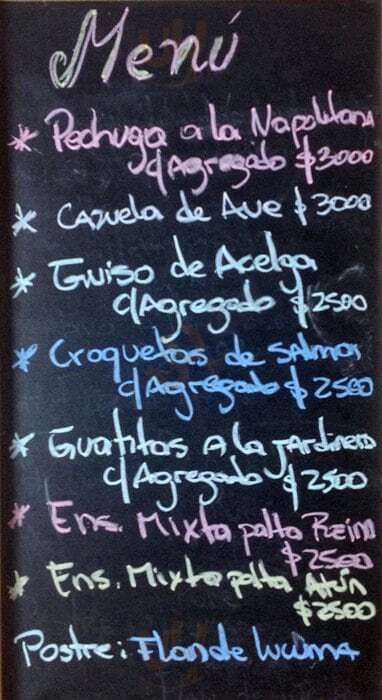 Menú
* Pechuga a la Napolitana
c/Agregado $3000
* Cazuela de Ave $3000
* Guiso de Acelga
c/Agregado $2500
* Croquetas de Salmon
c/Agregado $2500
* Guatitas A la Jardinera
c/Agregado $2500
* Ens. Mixta palta Reina
$2500
* Ens. Mixta palta Atún
$2500
Postre: Flan de Lucuma